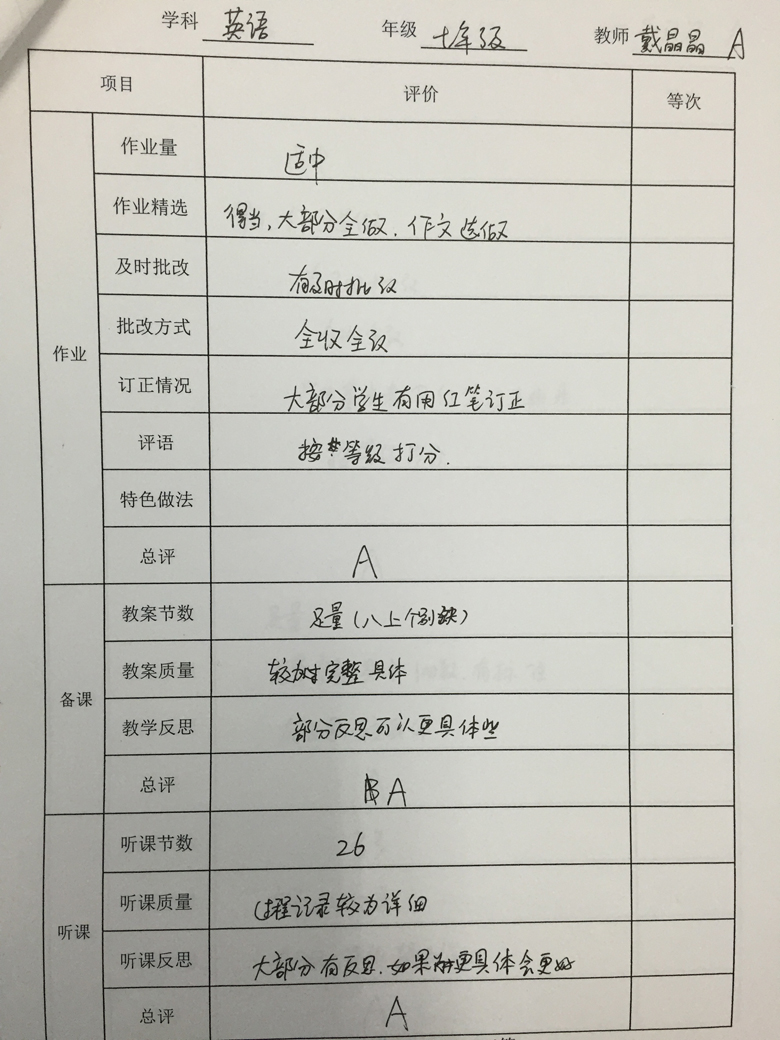 学科 英语 年级 七年级 教师 戴晶晶 A
项目 评价 等次
作业
作业量 适中
作业精选 得当、大部分全做．作文选做
及时批改 有及时批改
批改方式 全收全改
订正情况 大部分学生有用红笔订正
评语 按等级打分．
特色做法
总评 A
备课
教案节数 足量（八上个别缺）
教案质量 较为完整具体
教学反思 部分反思可以更具体些
总评 A
听课
听课节数 26
听课质量 过程记录较为详细
听课反思 大部分有反思．如果更具体会更好
总评 A